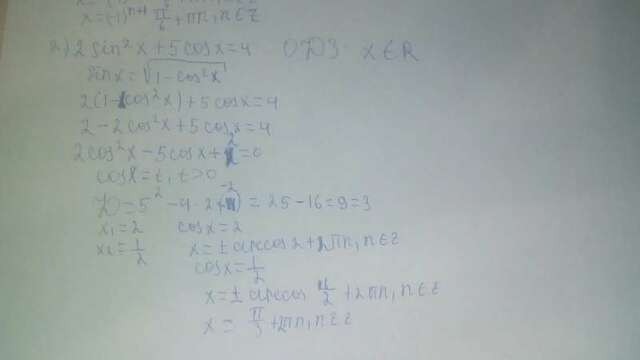 x=(-1)ⁿ⁺¹ π/6 + πn, n∈Z
2) 2sin²x + 5cosx = 4 ОДЗ: x∈R
sinx = √(1-cos²x)
2(1-cos²x) + 5cosx = 4
2 - 2cos²x + 5cosx = 4
2cos²x - 5cosx + 2 = 0
cosx = t, t>0
D = 5² - 4·2·2 = 25 - 16 = 9 = 3
x₁ = 2 cosx = 2
x₂ = 1/2 x = ± arccos2 + 2πn, n∈Z
cosx = 1/2
x = ± arccos π/2 + 2πn, n∈Z
x = π/3 + 2πn, n∈Z